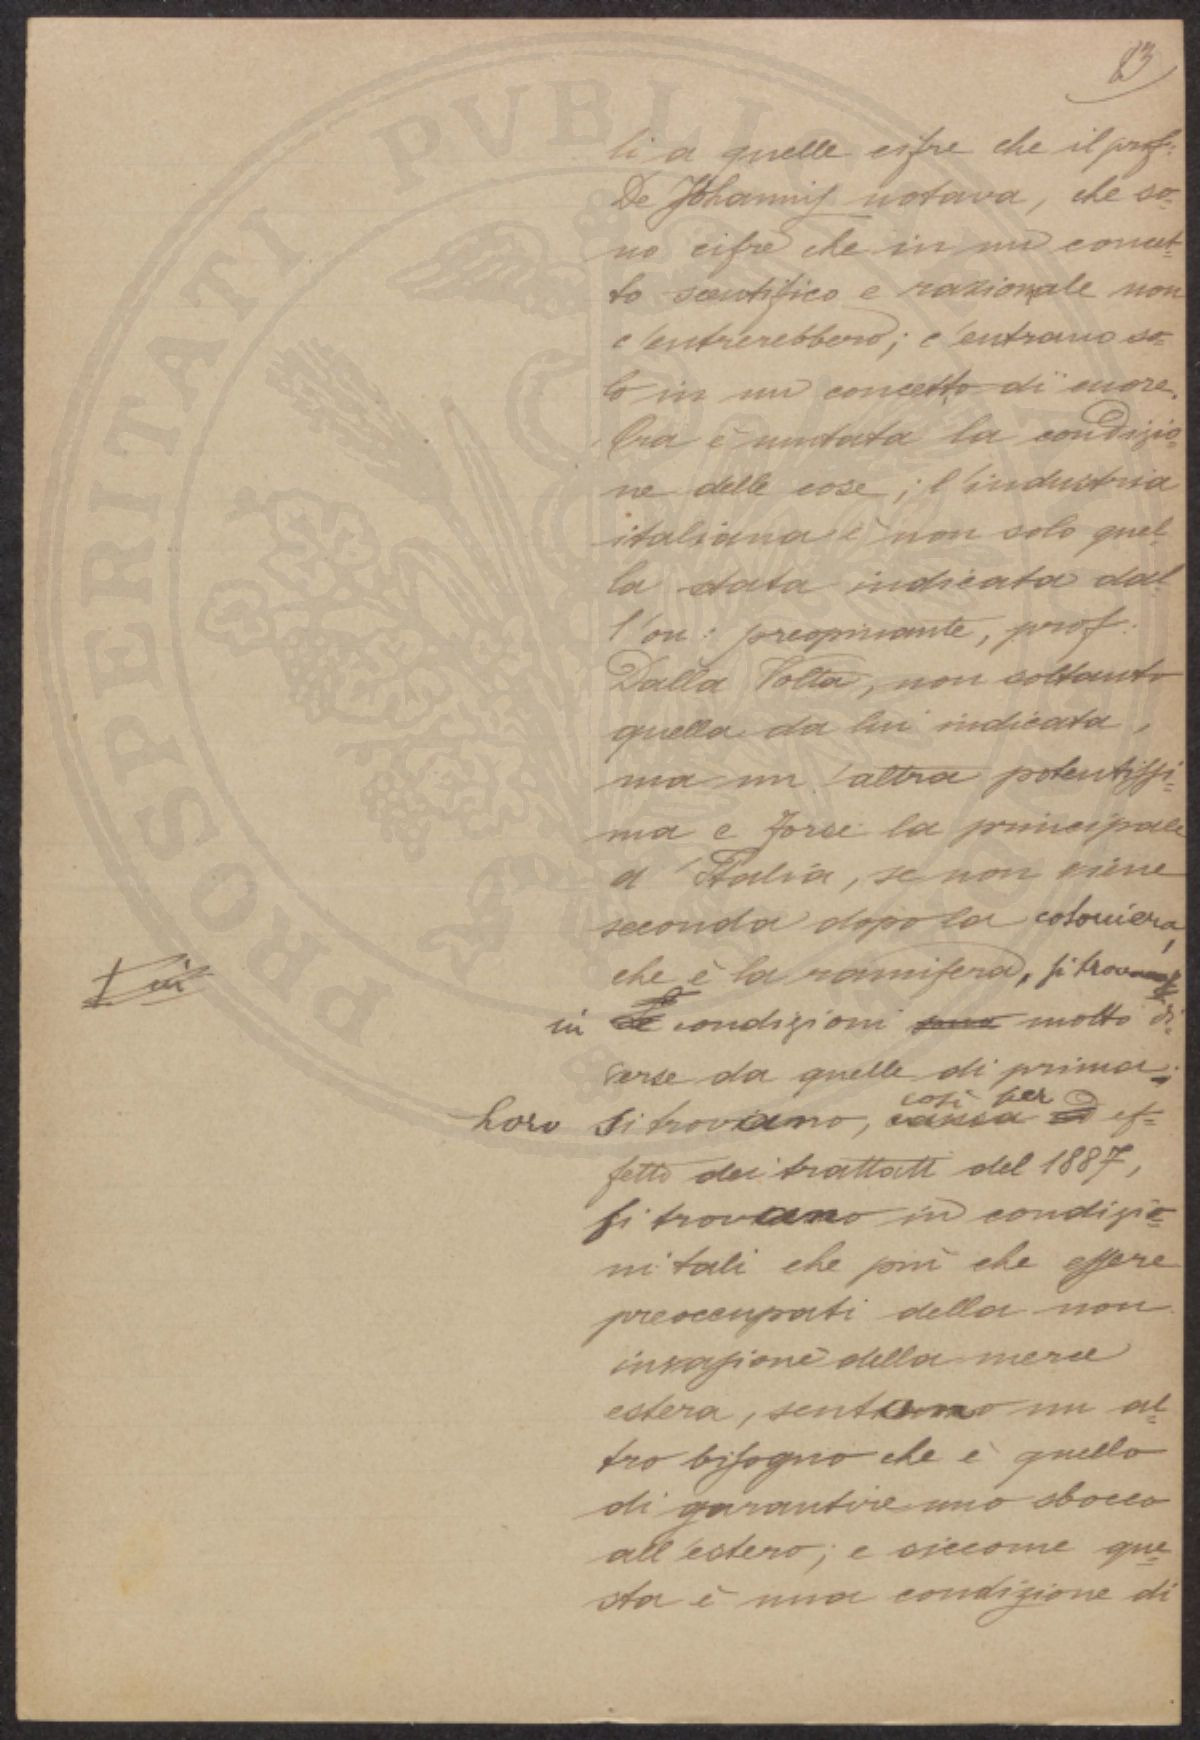 83
li a quelle cifre che il prof:
De Johannis notava, che so-
no cifre che in un concet-
to scentifico e razionale non
c'entrerebbero; c'entrano so-
lo in un concetto di cuore.
Ora è mutata la condizio-
ne delle cose; l'industria
italiana è non solo quel-
la stata indicata dal-
l'on: preopinante, prof:
Dalla Volta, non soltanto
quella da lui indicata,
ma un'altra potentissi-
ma e forse la principale
d'Italia, se non viene
seconda dopo la cotoniera,
che è la ramifera, si trova
in condizioni sono molto di-
verse da quelle di prima;
così per
loro si trovano, causa ef-
fetto dei trattati del 1887,
si trovano in condizio-
ni tali che più che essere
preoccupati della non
invasione della merce
estera, sentono un al-
tro bisogno che è quello
di garantire uno sbocco
all'estero; e siccome que-
sta è una condizione di
PROSPERITATI PVBLICAE